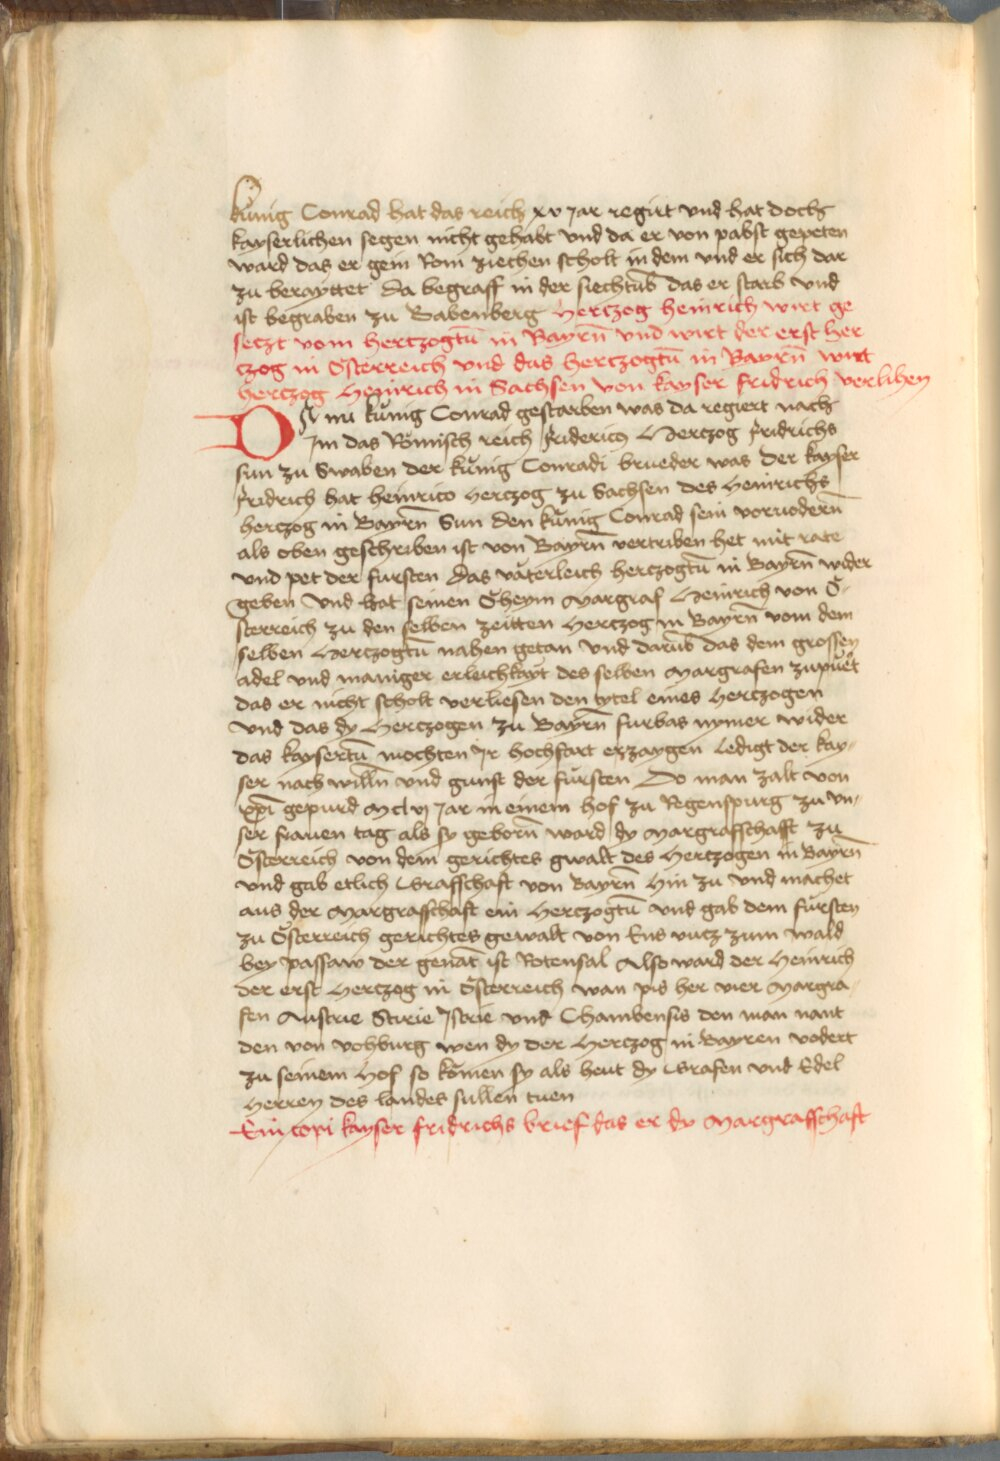 kůnig Conrad hat das reich xv jar regirt vnd hat doch
kayserlichen segen nicht gehabt vnd da er von pabst gepeten
ward das er gein Rom ziechen scholt in dem vnd er sich dar
zu berayttet da begraff in der siechtub̄ das er starb vnd
ist begraben zu Babenberg Hertzog heinrich wirt ge
seczt vom hertzogtū in Bayrn̄ vnd wirt der erst her
czog in Österreich vnd das hertzogtū in Bayrn̄ wirt
hertzog Heinrich in Sachsen von kayser fridrich verlihen
DA nu kůnig Conrad gestarben was da regiert nach
Im das Römisch reich fridericꝰ Hertzog fridrichs
sun zu Swaben der kůnig Conradi brueder was der kayser
fridrich hat heinrico Hertzog zu Sachsen des Heinrichs
hertzog in Bayrn̄ Sun den kůnig Conrad sein voruodern̄
als oben geschriben ist von Bayrn̄ vertriben het mit rate
vnd pet der fursten das våterleich hertzogtū in Bayrn̄ wider
geben vnd hat seinen Öheym Margraf Heinrich von Ö-
sterreich zu den selben zeitten Hertzog in Bayrn̄ vom dem
selben Hertzogtū nahen getan vnd darub̄ das dem grossen
adel vnd maniger erleichkayt des selben Margrafen zupůet
das er nicht scholt verliesen den tytel eines Hertzogen
vnd das dy Hertzogen zu Bayrn̄ furbas nymer wider
das kaysertū mochten Ir hochfart erzaygen ledigt der kay-
ser nach willn̄ vnd gunst der fůrsten Do man zalt von
xp̄i gepurd Mclvj jar in einem hof zu Regenspurg zu vn-
ser frauen tag als sy geborn̄ ward dy Margraffschafft zu
Österreich von dem gerichtes gwalt des Hertzogen in Bayrn̄
vnd gab etlich Graffschaft von Bayrn̄ Hin zu vnd machet
aus der Margraffschaft ein Hertzogtū vnd gab dem fůrsten
zu Österreich gerichtes gewalt von Ens vncz zum wald
bey passaw der genāt ist Rotensal Also ward der Heinrich
der erst Hertzog in Österreich wan pis her vier Margra-
fen Austrie Stirie Istrie vnd Chambensis den man nant
den von vohburg wen dy der Hertzog in Bayren vodert
zu seinem Hof so kömen sy als heut dy Grafen vnd Edel
Herren des landes sullen tuen
Ein copi kayser fridrichs brief das er dy Margraffschaft